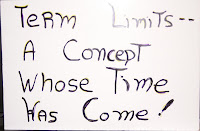 Term Limits--
A Concept
Whose Time
Has Come!